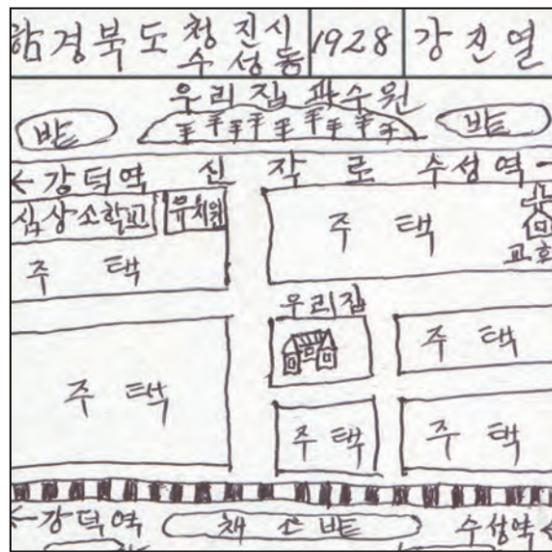 함경북도 청진시 수성동 1928 강진열
우리집 과수원
밭 밭
←강덕역 신작로 수성역→
심상소학교 유치원 주택
교회
주택
우리집
주택
주택
주택 주택
←강덕역 채소밭 수성역